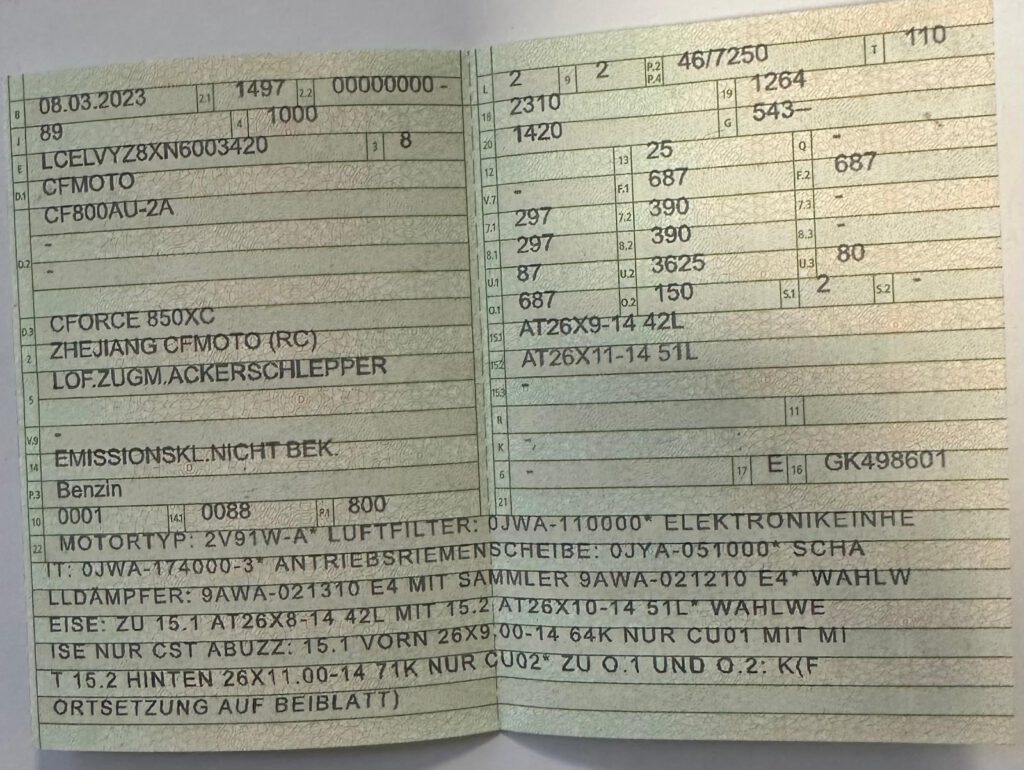 B 08.03.2023 2.1 1497 2.2 00000000 -
J 89 4 1000
E LCELVYZ8XN6003420 3 8
D.1 CFMOTO
CF800AU-2A
D.2 -
-
D.3 CFORCE 850XC
2 ZHEJIANG CFMOTO (RC)
5 LOF.ZUGM.ACKERSCHLEPPER
V.9 -
14 EMISSIONSKL.NICHT BEK.
P.3 Benzin
10 0001 14.1 0088 P.1 800
L 2 9 2 P.2 P.4 46/7250 T 110
18 2310 19 1264
20 1420 G 543—
12 - 13 25 Q -
V.7 - F.1 687 F.2 687
7.1 297 7.2 390 7.3 -
8.1 297 8.2 390 8.3 -
U.1 87 U.2 3625 U.3 80
O.1 687 O.2 150 S.1 2 S.2 -
15.1 AT26X9-14 42L
15.2 AT26X11-14 51L
15.3 -
R 11
K -
6 - 17 E 16 GK498601
21
22 MOTORTYP: 2V91W-A* LUFTFILTER: 0JWA-110000* ELEKTRONIKEINHE
IT: 0JWA-174000-3* ANTRIEBSRIEMENSCHEIBE: 0JYA-051000* SCHA
LLDÄMPFER: 9AWA-021310 E4 MIT SAMMLER 9AWA-021210 E4* WAHLW
EISE: ZU 15.1 AT26X8-14 42L MIT 15.2 AT26X10-14 51L* WAHLWE
ISE NUR CST ABUZZ: 15.1 VORN 26X9.00-14 64K NUR CU01 MIT MI
T 15.2 HINTEN 26X11.00-14 71K NUR CU02* ZU O.1 UND O.2: K(F
ORTSETZUNG AUF BEIBLATT)